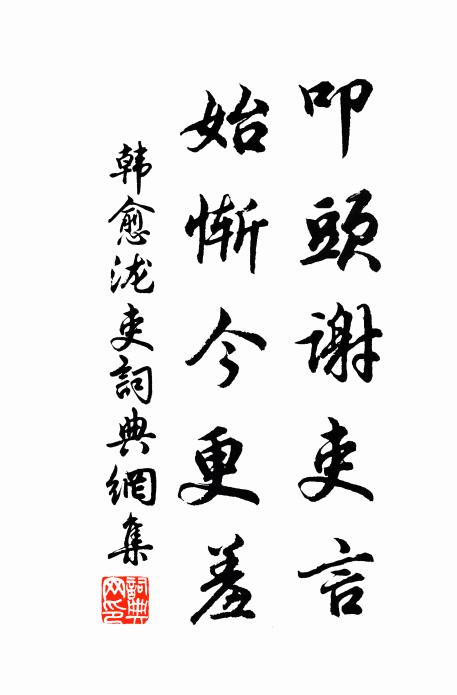 叩頭謝吏言
始慚今更羞
韩愈泷吏詞典網集
詞典網印